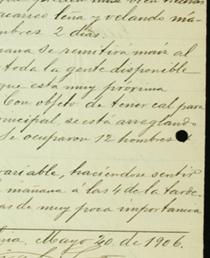 acarreo leña y velando ma-
mbres 2 dias.
ana se remitirá maiz al
toda la gente disponible
que está muy próxima
Con objeto de tener cal para
ncipal se está arreglando
Se ocuparon 12 hombres
variable, haciendo sentir
mañana a las 4 de la tarde
as de muy poca importancia
na, Mayo 20 de 1906.